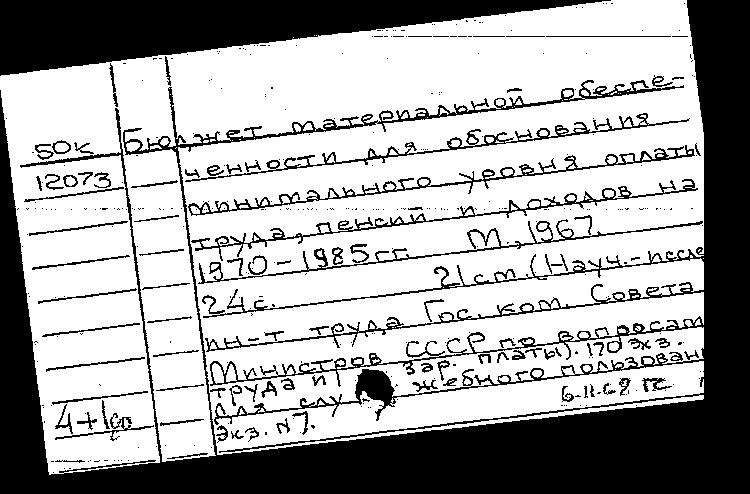 50к Бюджет материальной обеспе-
12073 ченности для обоснования
минимального уровня оплаты
труда, пенсий и доходов на
1970-1985гг. М., 1967.
24с. 21см. (Науч.-иссле
ин-т труда Гос. ком. Совета
Министров СССР по вопросам
труда и зар. платы). 170 экз.
Для слу жебного пользован
4+1 Экз. N7.